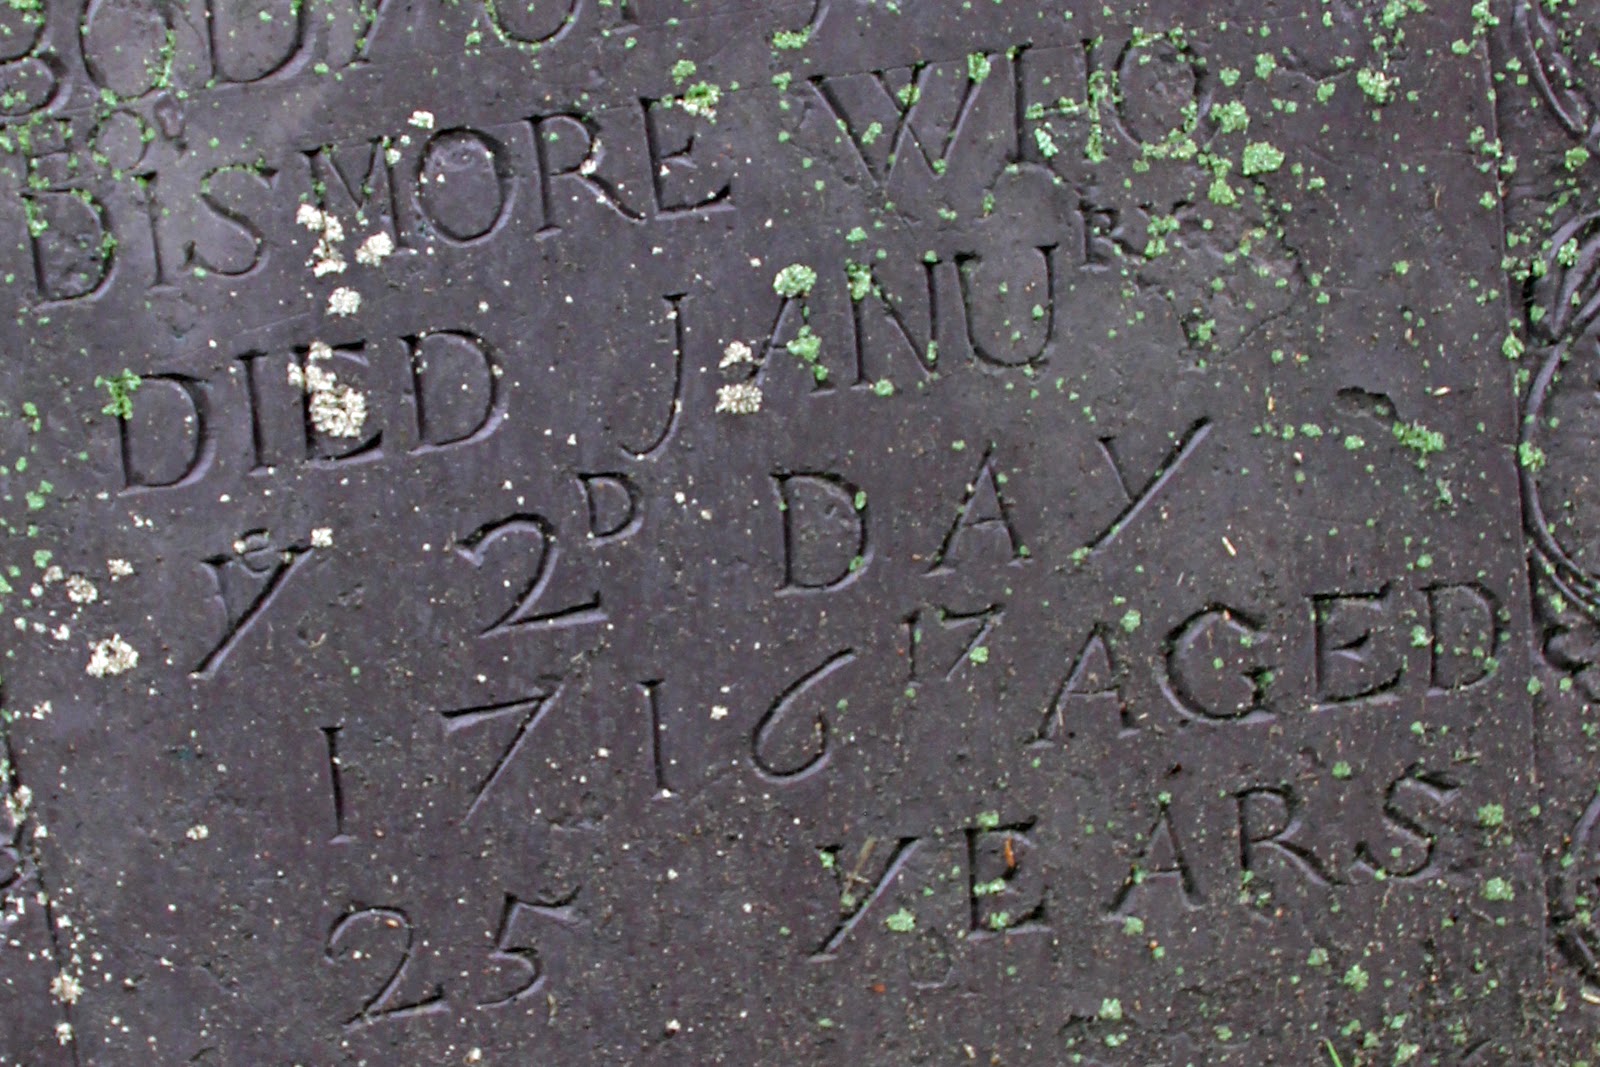 BODY OF J
DISMORE WHO
DIED JANURY
YE 2D DAY
1716 17 AGED
25 YEARS